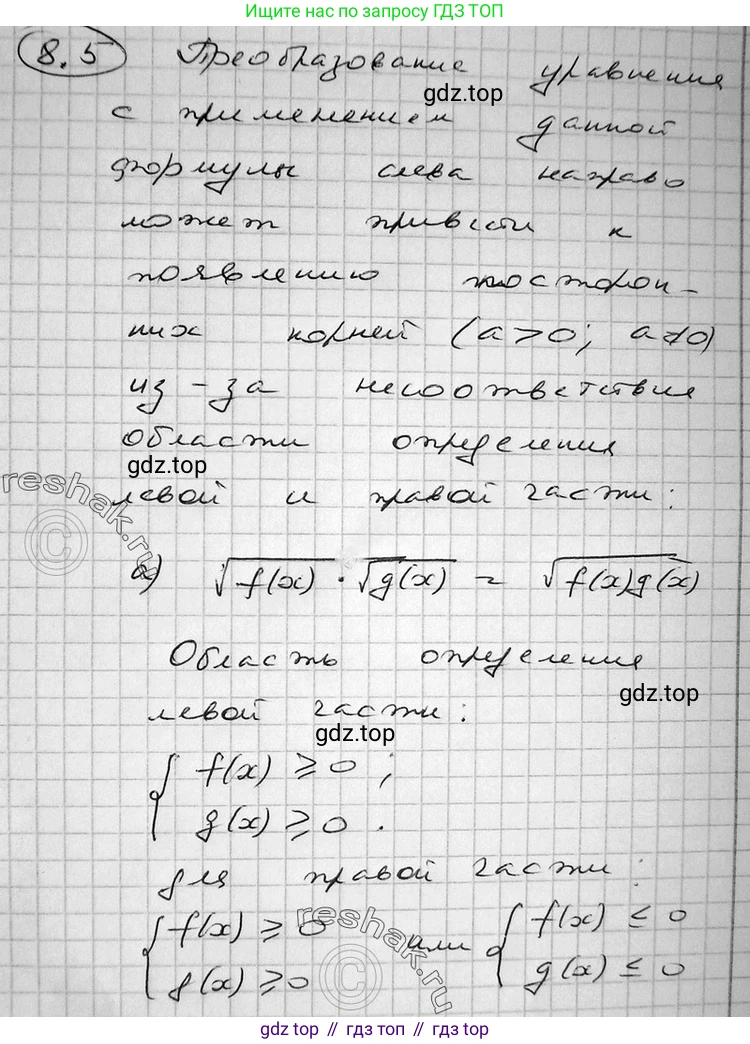 Ищите нас по запросу ГДЗ ТОП
8.5 Преобразование уравнения
gdz.top
с применением данной
формулы слева направо
может привести к
появлению посторон-
них корней (a>0; a≠0)
из-за несоответствия
области определения
gdz.top
левой и правой части:
reshak.ru
©
а) √f(x) · √g(x) = √f(x)g(x)
Область определения
gdz.top
левой части:
gdz.top
{ f(x) ≥ 0;
g(x) ≥ 0.
для правой части:
reshak.ru
{ f(x) ≥ 0 или { f(x) ≤ 0
g(x) ≥ 0 g(x) ≤ 0
©
gdz.top // гдз топ // gdz.top